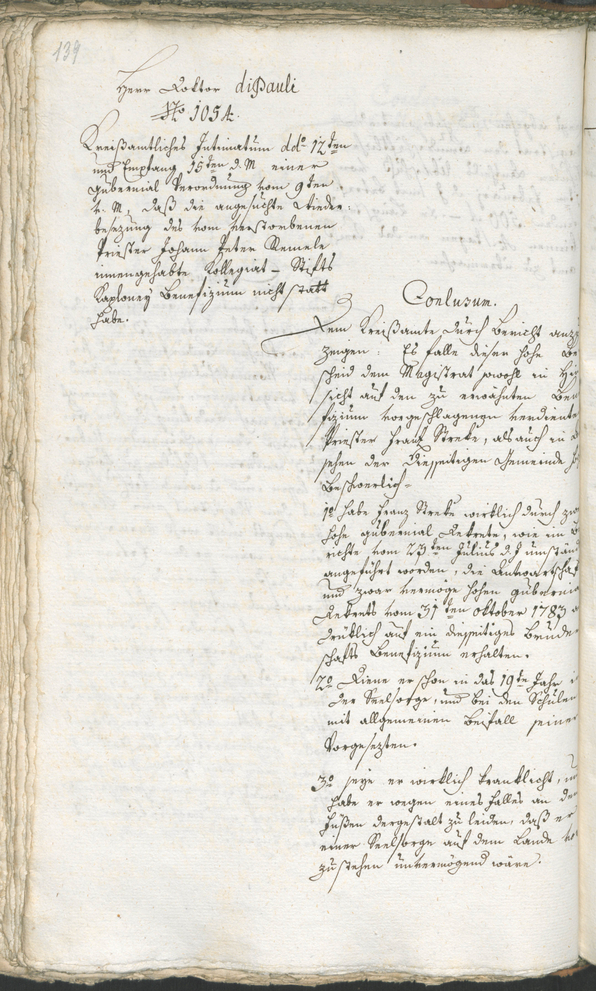 139
Herr Doktor diPauli
No 1054.
Kreißamtliches Intimatum ddo 12ten
und Empfang 15ten d. M. einer
Gubernial Verordnung vom 9ten
d. M., daß die angesuchte Wieder-
besezung des vom verstorbenen
Priester Johann Peter Remele
innengehabte Kollegiat-Stifts
Kaplaney Benefizium nicht statt
habe.
Conlusum.
Dem Kreißamte durch Bericht anzu
zeigen: Es falle dieser hohe Be
scheid dem Magistrat sowohl in Hin
sicht auf den zu erwähnten Bene
fizium vorgeschlagenen verdiente
Priester Franz Streke, als auch in
sehen der diesseitigen Gemeinde
beschwerlich-
1o habe Franz Streke wirklich durch zwo
hohe Gubernial Dekrete, wie im Be
richte vom 23ten Julius d. J. umständ
angeführt worden, die Anwartschaft
und zwar vermöge hohen Gubernial
Dekrets vom 31ten Oktober 1783
drüklich auf ein diesseitiges Bruder
schafts Benefizium erhalten.
2o Diene er schon in das 19te Jahr in
der Seelsorge, und bei den Schulen
mit allgemeinen Beifall seiner
Vorgesezten.
3o seye er wirklich kranklicht, und
habe er wegen eines Falles an den
Füßen dergestalt zu leiden, daß er
einer Seelsorge auf dem Lande vor
zustehen unvermögend wäre.